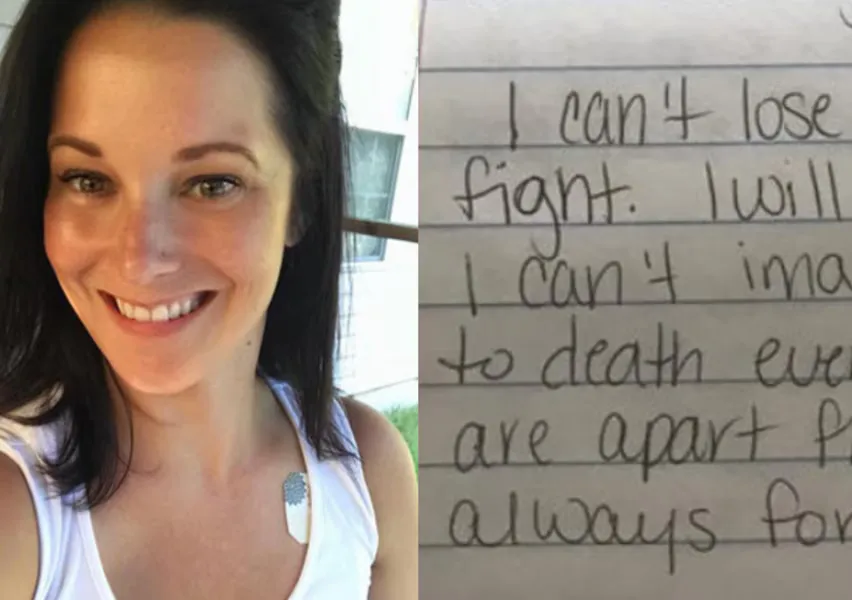 I can't lose
fight. I will
I can't ima
to death eve
are apart f
always for